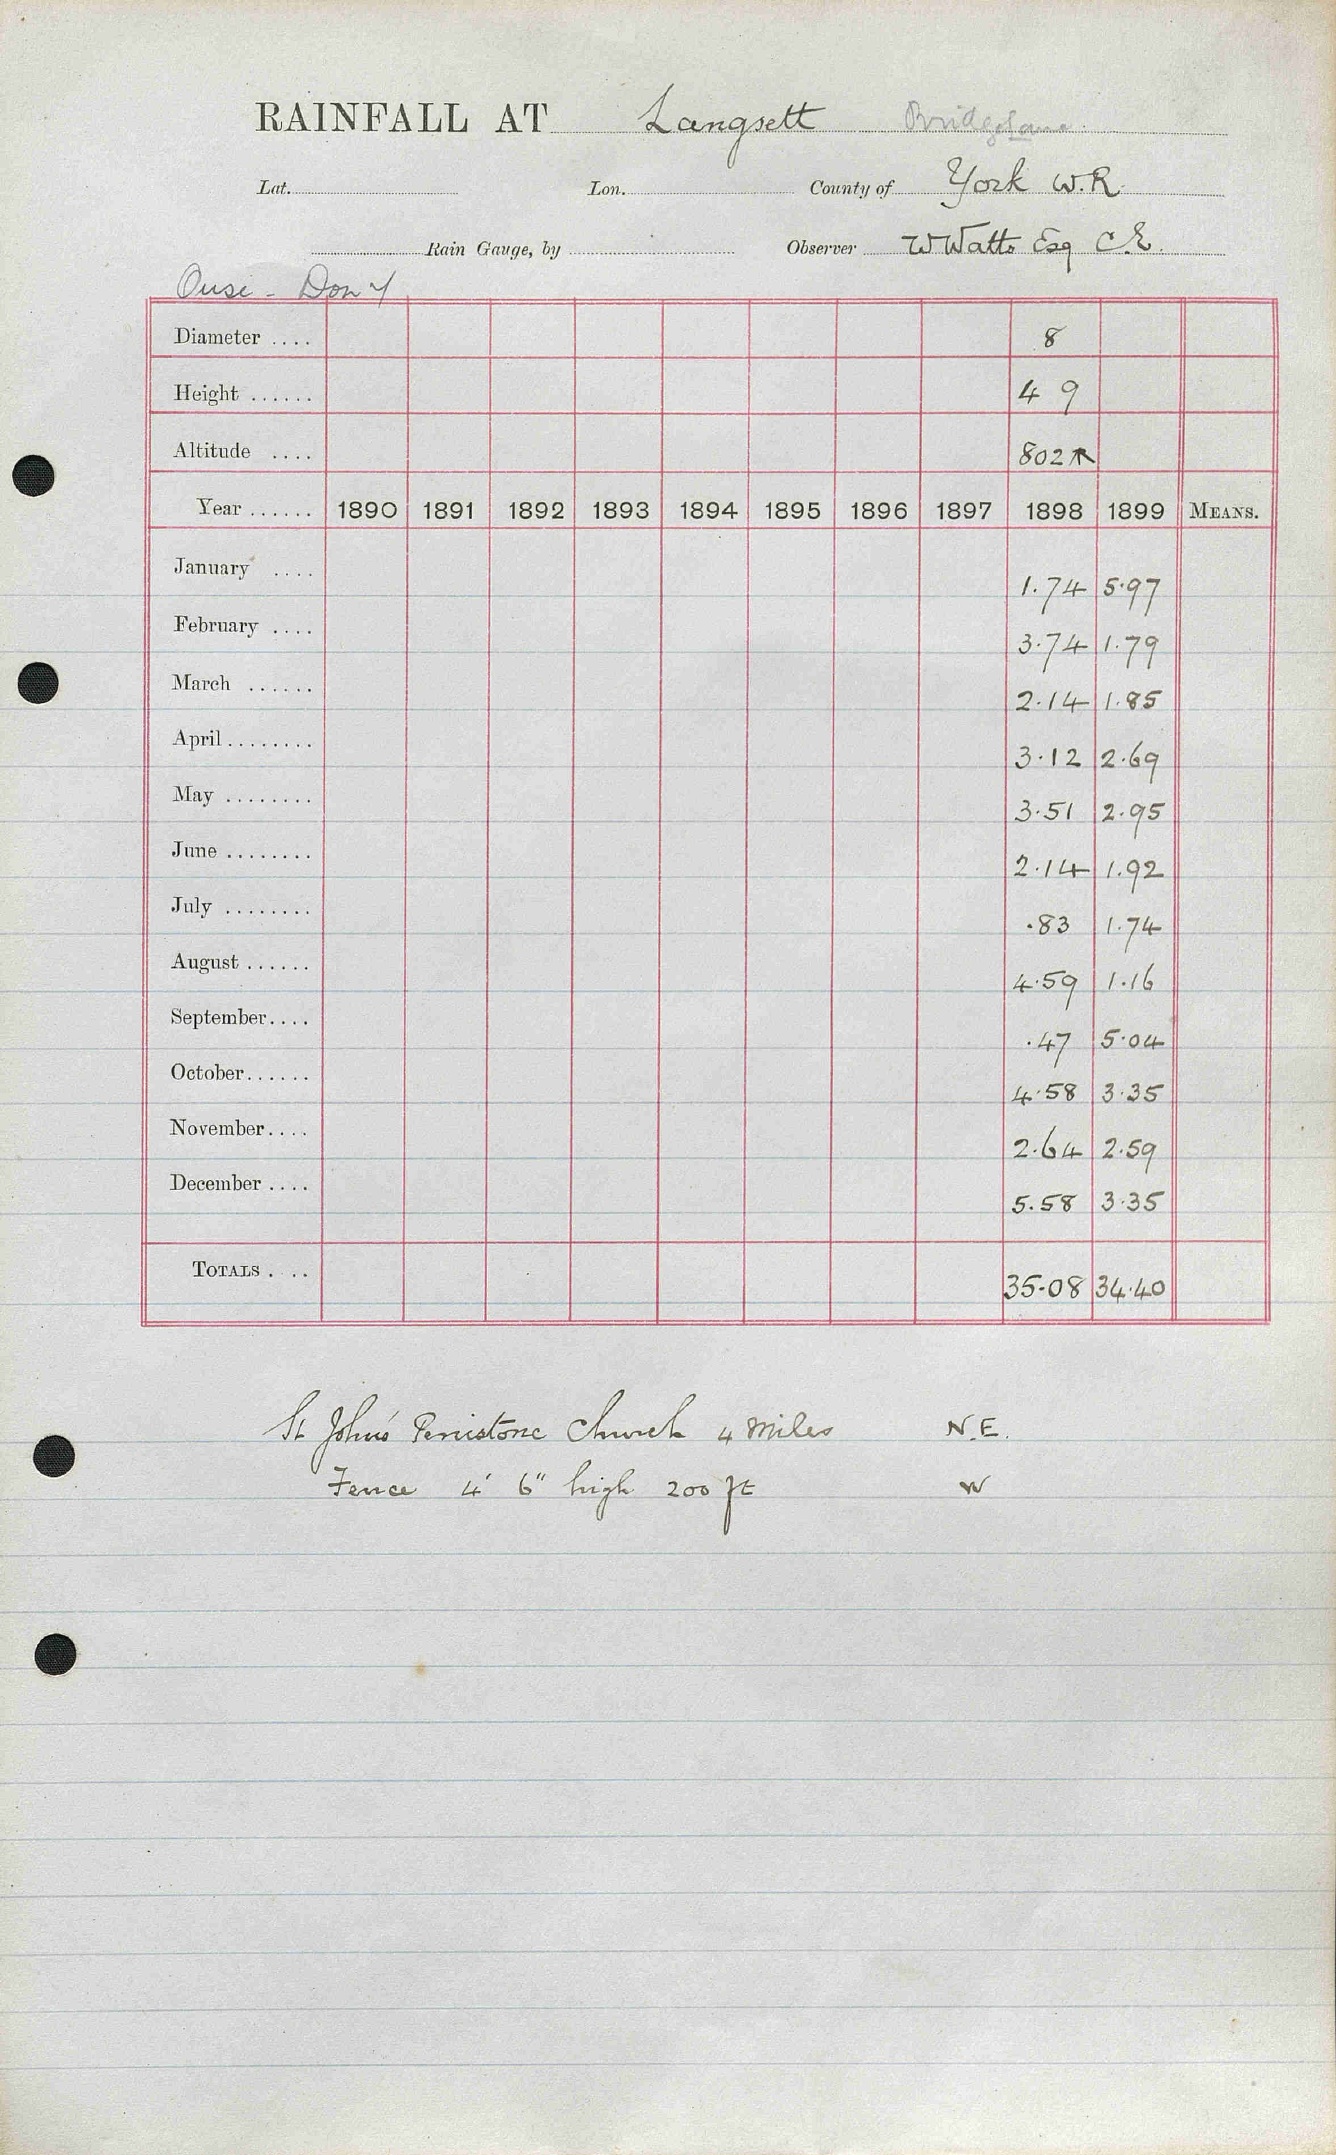 RAINFALL AT Langsett Bridge Lane
Lat. Lon. County of York W.R.
Rain Gauge, by Observer W Watts Esq C.E.
Ouse - Don
Diameter .... 8
Height ...... 4 9
Altitude .... 802
Year ...... 1890 1891 1892 1893 1894 1895 1896 1897 1898 1899 MEANS.
January .... 1.74 5.97
February .... 3.74 1.79
March ...... 2.14 1.85
April ........ 3.12 2.69
May ........ 3.51 2.95
June ........ 2.14 1.92
July ........ .83 1.74
August ...... 4.59 1.16
September.... .47 5.04
October...... 4.58 3.35
November.... 2.64 2.59
December .... 5.58 3.35
TOTALS . .. 35.08 34.40
St John's Penistone Church 4 Miles N.E.
Fence 4' 6" high 200 ft W